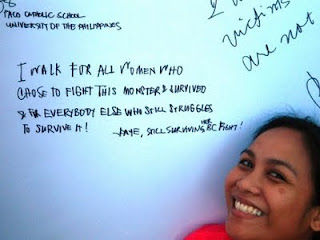 PACO CATHOLIC SCHOOL
UNIVERSITY OF THE PHILIPPINES
I WALK FOR ALL WOMEN WHO
CHOSE TO FIGHT THIS MONSTER & SURVIVED
& FOR EVERYBODY ELSE WHO STILL STRUGGLES
TO SURVIVE IT!
- JAYE, STILL SURVIVING HER BC FIGHT!
I
victims
are not